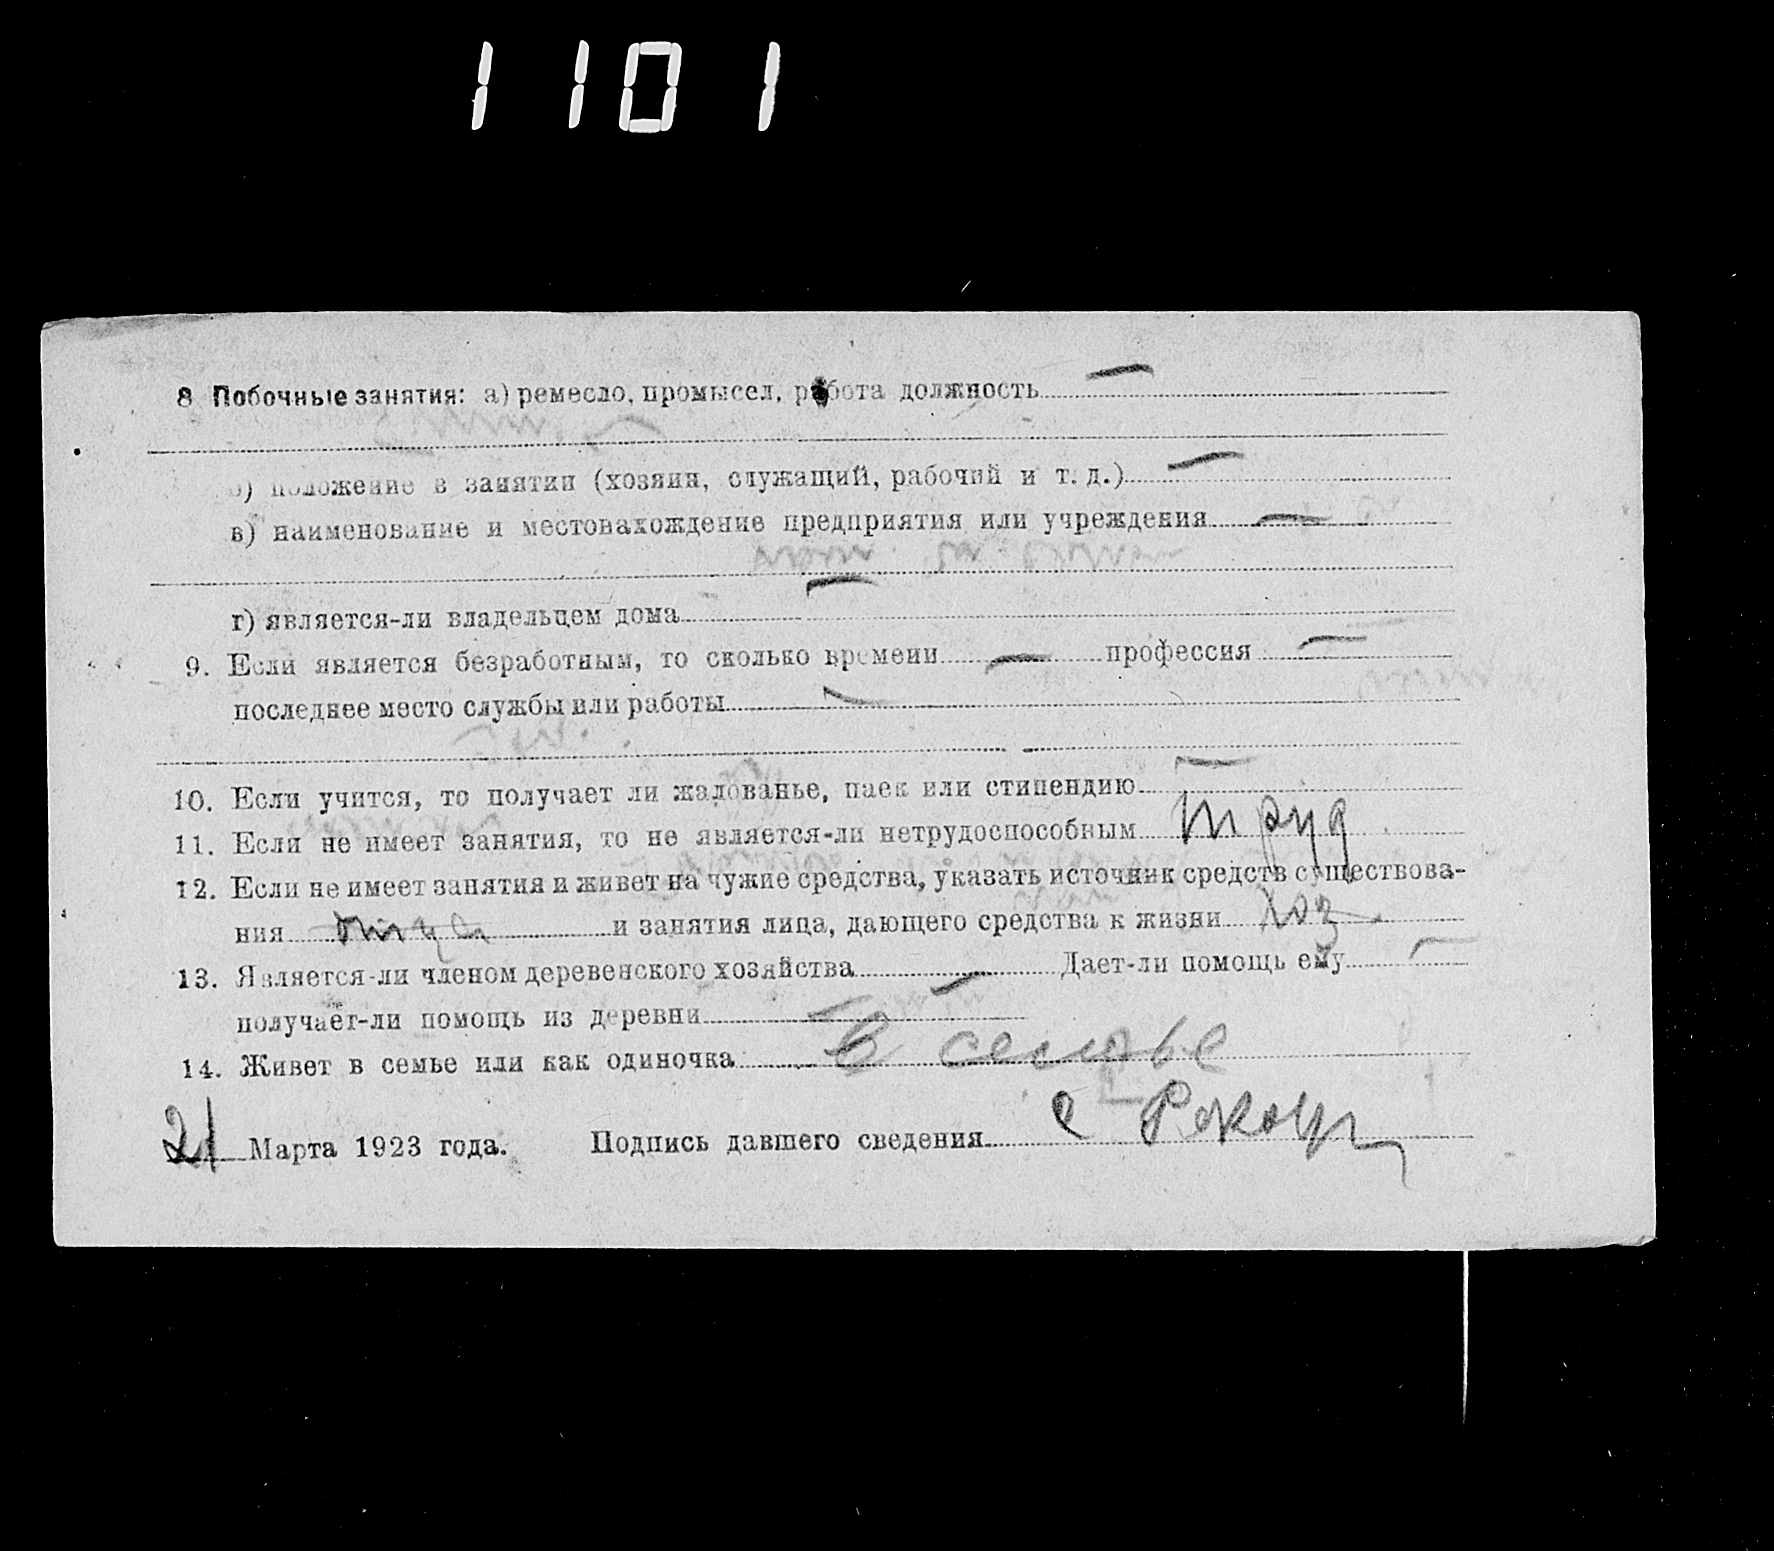 1101
8 Побочные занятия: а) ремесло, промысел, работа должность —
б) положение в занятии (хозяин, служащий, рабочий и т. д.) —
в) наименование и местонахождение предприятия или учреждения —
г) является-ли владельцем дома —
9. Если является безработным, то сколько времени — профессия —
последнее место службы или работы —
10. Если учится, то получает ли жалованье, паек или стипендию —
11. Если не имеет занятия, то не является-ли нетрудоспособным труд
12. Если не имеет занятия и живет на чужие средства, указать источник средств существова-
ния отца и занятия лица, дающего средства к жизни хоз.
13. Является-ли членом деревенского хозяйства — Дает-ли помощь ему —
получает-ли помощь из деревни —
14. Живет в семье или как одиночка В семье
21 Марта 1923 года. Подпись давшего сведения